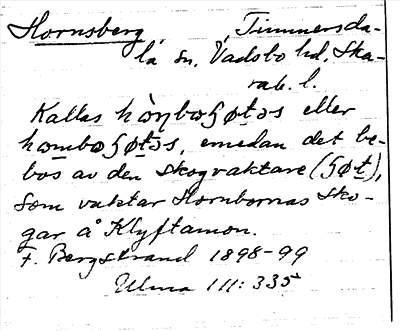 Hornsberg, Timmersda-
la sn. Vadsbo hd. Ska-
rab. l.
Kallas eller
emedan det be-
bos av den skogvaktare
som vaktar Hornbornas sko-
gar å Klyftamon.
F. Bergstrand 1898-99
Ulma 111: 335